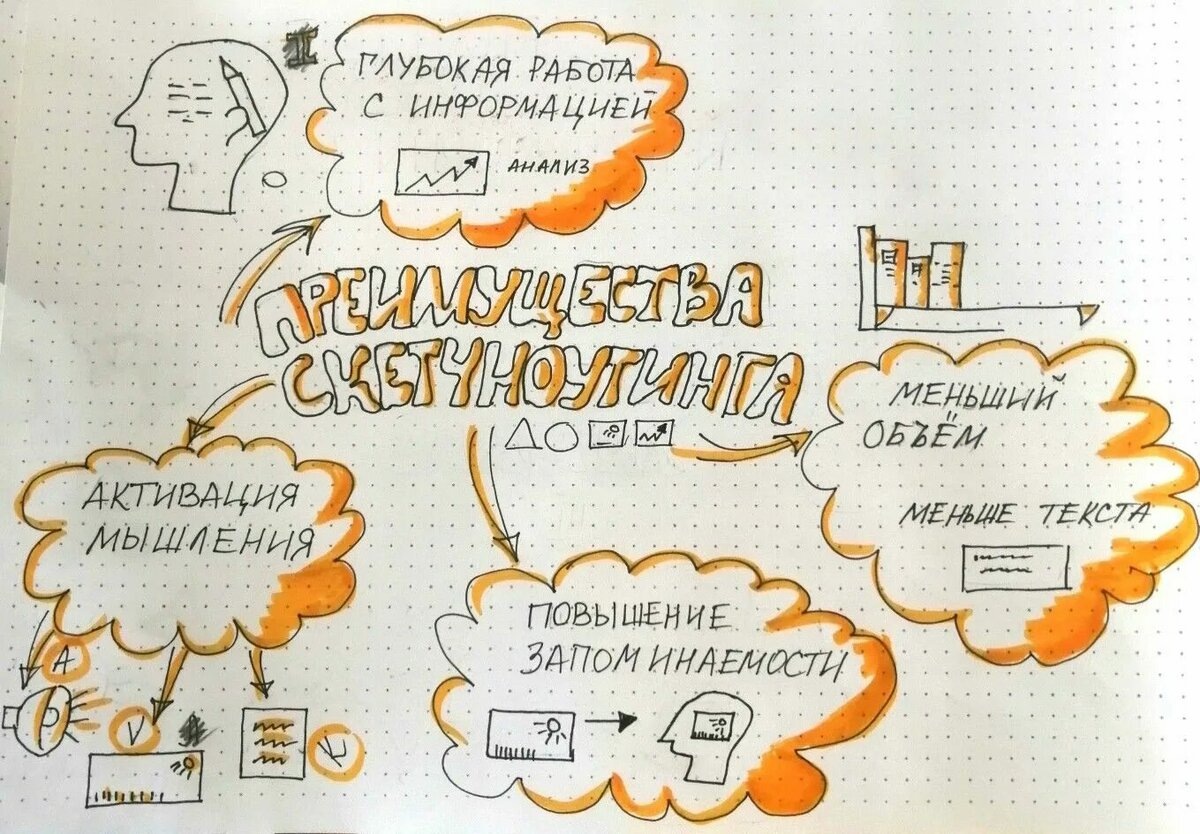 I
ГЛУБОКАЯ РАБОТА
С ИНФОРМАЦИЕЙ
АНАЛИЗ
ПРЕИМУЩЕСТВА
СКЕТЧНОУТИНГА
МЕНЬШИЙ
ОБЪЁМ
МЕНЬШЕ ТЕКСТА
АКТИВАЦИЯ
МЫШЛЕНИЯ
A
V
K
ПОВЫШЕНИЕ
ЗАПОМИНАЕМОСТИ